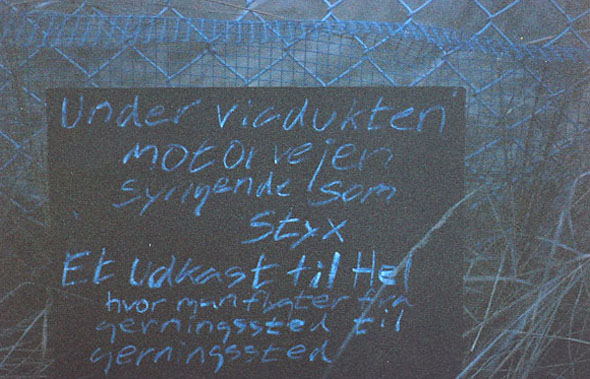 Under viadukten
motorvejen
syngende som
Styx
Et Udkast til Hel
hvor man flygter fra
gerningssted til
gerningssted